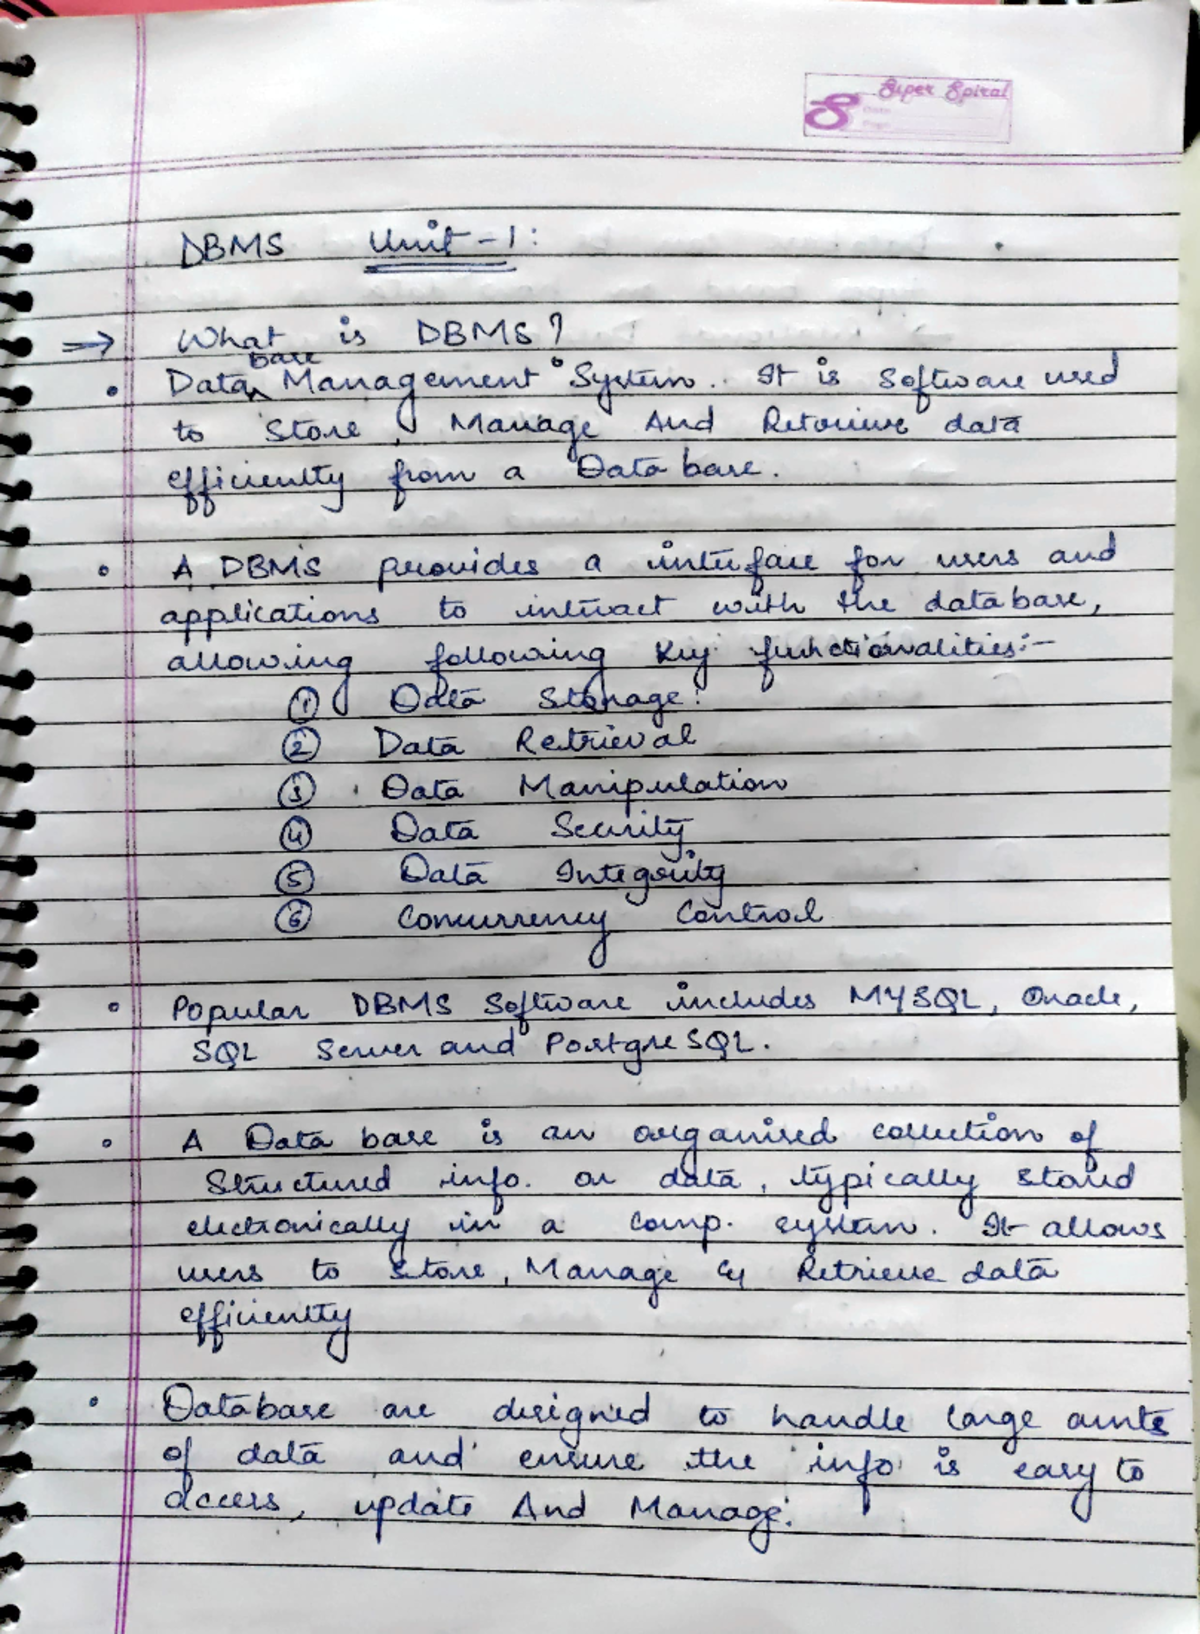 Super Spiral
DBMS Unit-1:
⇒ What is DBMS?
• Database Management System. It is software used
to store, Manage And Retrieve data
efficiently from a Database.
• A DBMS provides a interface for users and
applications to interact with the database,
allowing following key functionalities:-
① Data Storage.
② Data Retrieval
③ Data Manipulation
④ Data Security
⑤ Data Integrity
⑥ Concurrency Control
• Popular DBMS Software includes MYSQL, Oracle,
SQL Server and PostgreSQL.
• A Data base is an organised collection of
Structured info. or data, typically stored
electronically in a comp. system. It allows
users to store, Manage & Retrieve data
efficiently
• Database are designed to handle large amts
of data and ensure the info is easy to
access, update And Manage.